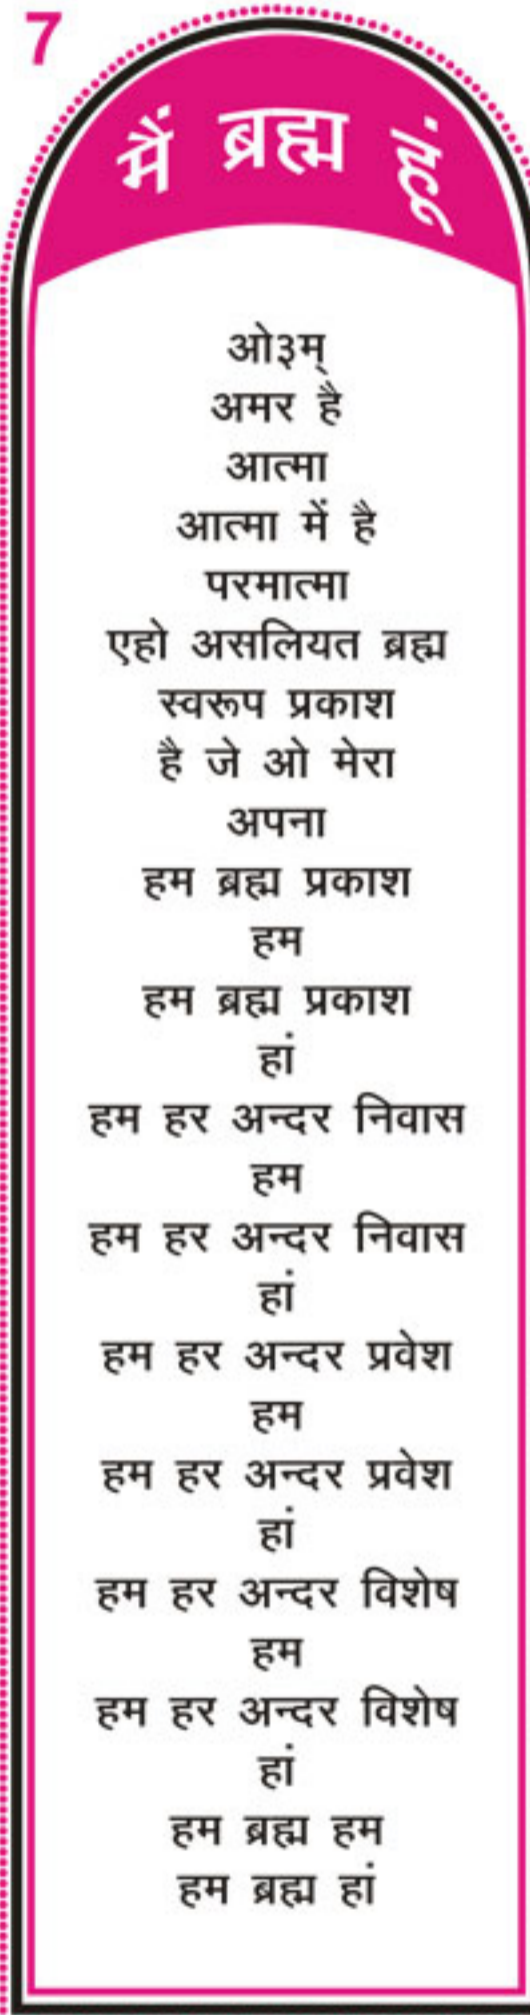 7
मैं ब्रह्म हूं
ओ३म्
अमर है
आत्मा
आत्मा में है
परमात्मा
एहो असलियत ब्रह्म
स्वरूप प्रकाश
है जे ओ मेरा
अपना
हम ब्रह्म प्रकाश
हम
हम ब्रह्म प्रकाश
हां
हम हर अन्दर निवास
हम
हम हर अन्दर निवास
हां
हम हर अन्दर प्रवेश
हम
हम हर अन्दर प्रवेश
हां
हम हर अन्दर विशेष
हम
हम हर अन्दर विशेष
हां
हम ब्रह्म हम
हम ब्रह्म हां